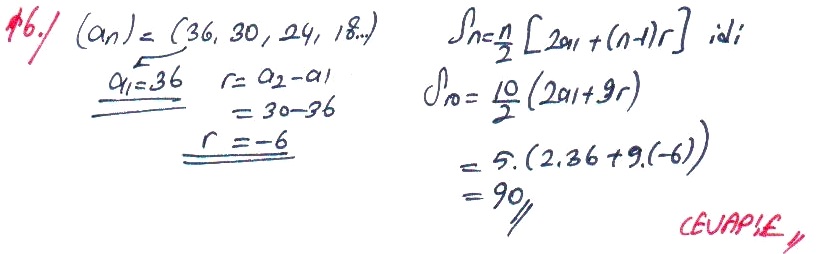 16./ (an) = (36, 30, 24, 18...)
a1 = 36 r = a2 - a1
= 30 - 36
r = -6
Sn = n/2 [2a1 + (n-1)r] idi
S10 = 10/2 (2a1 + 9r)
= 5.(2.36 + 9.(-6))
= 90//
CEVAP: E //